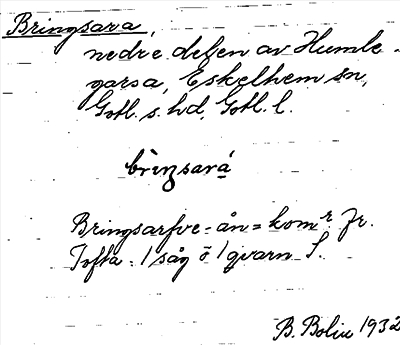 Bringsara,
nedre delen av Humle-
garsa, Eskelhem sn,
Gotl. s. hd, Gotl. l.
brìŋsará
Bringsarfve-ån = kom r. fr.
Tofta. 1 såg o 1 qvarn S.
B. Bolin 1932